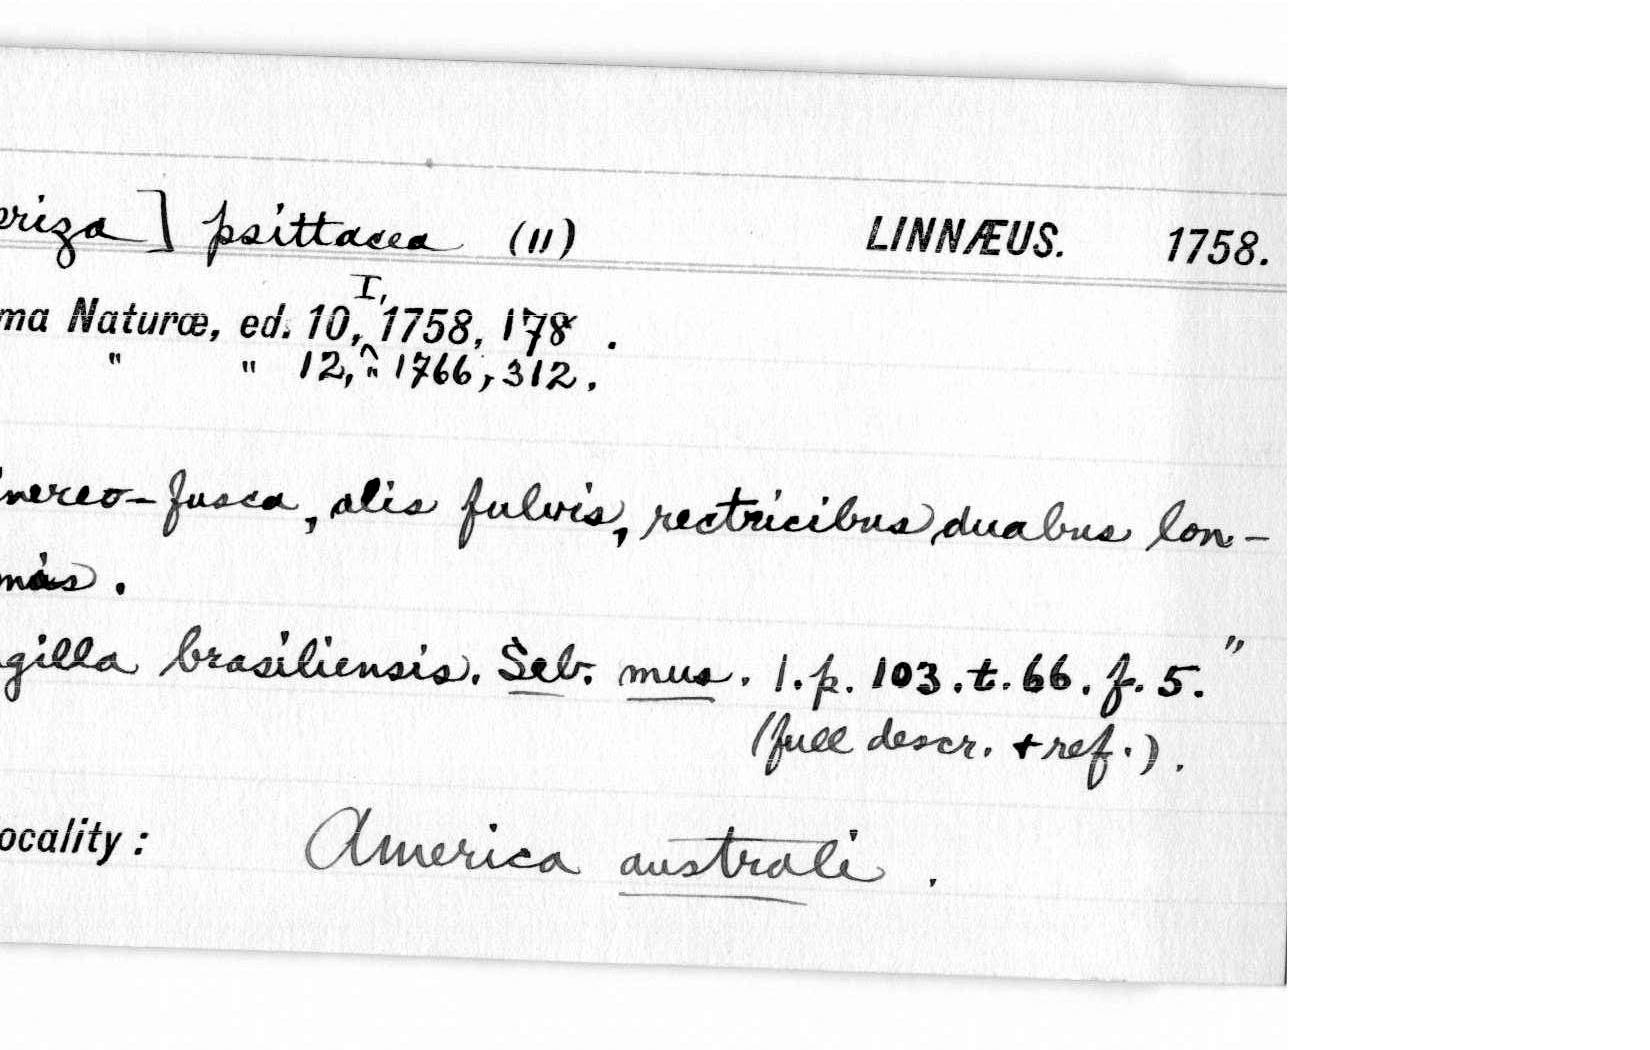 eriza] psittacea (11) LINNÆUS. 1758.
ma Naturæ, ed. 10, I, 1758, 178 .
" " 12, " 1766, 312.
inereo-fusca, alis fulvis, rectricibus duabus lon-
mis.
gilla brasiliensis. Seb. mus. 1. p. 103. t. 66. f. 5."
(full descr. + ref.).
ocality: America australi.